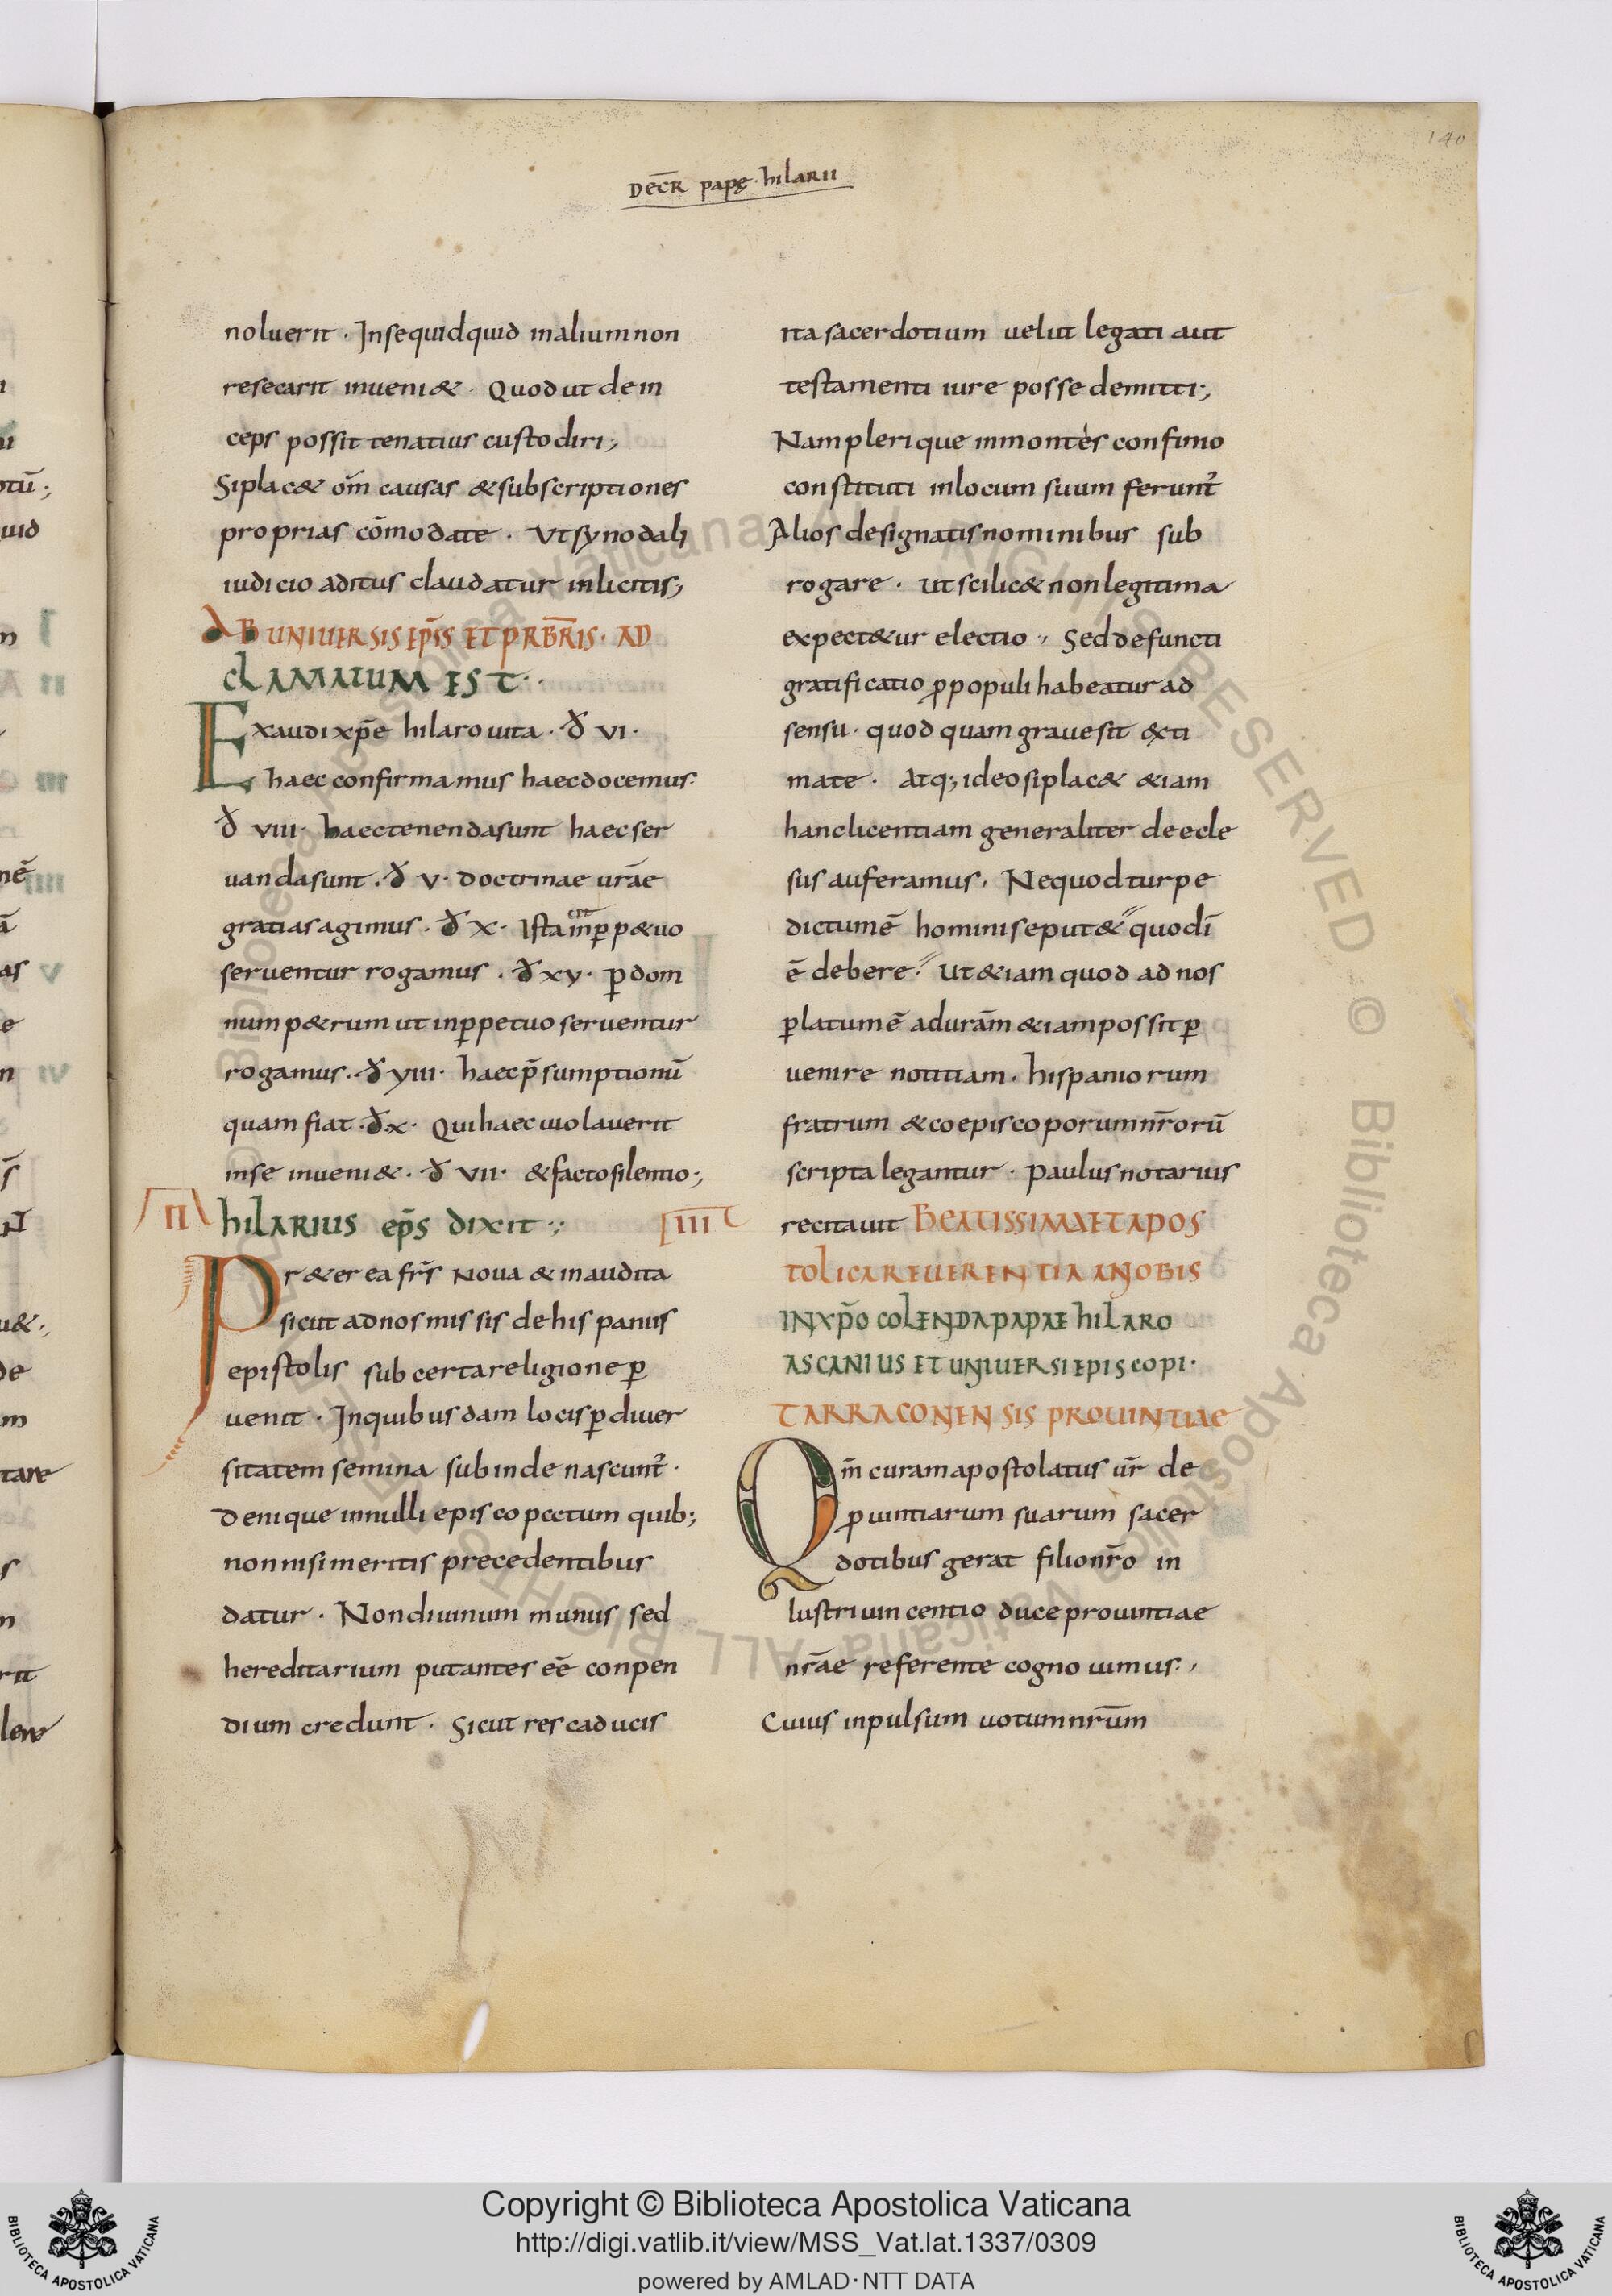 140
DECR̄ papę · hilarii
noluerit · Inse quidquid in alium non
resecarit inueni& · Quod ut dein
ceps possit tenatius custodiri;
Si plac& om̄ causas & subscriptiones
proprias cōmodate · Ut synodali
iudicio aditus claudatur inlicitis;
AB UNIUERSIS EPS̄S ET PRB̄RIS · AD
CLAMATUM EST ·
Exaudi xp̄e hilaro uita · đ VI ·
haec confirmamus haec docemus ·
đ VIII · haec tenenda sunt haec ser
uanda sunt · đ V · doctrinae ur̄ae
gratias agimus · đ X · Ista in ꝑp&uo
seruentur rogamus · đ XV · ꝑ dom
num p&rum ut in ꝑpetuo seruentur
rogamus · đ VIII · haec p̄sumptio nū
quam fiat · đ X · Qui haec uiolauerit
inse inueni& · đ VII · & facto silentio;
II hilARIUS ep̄s dixit
Pr&erea fr̄s noua & inaudita
sicut ad nos missis de hispaniis
epistolis sub certa religione ꝑ
uenit · In quibusdam locis ꝑ diuer
sitatem semina subinde nascunt̄ ·
Denique in nulli episcopectum quib;
non nisi meritis precedentibus
datur · Non diuinum munus sed
hereditarium putantes eē conpen
dium credunt · Sicut res caducis
ita sacerdotium uelut legati aut
testamenti iure posse demitti;
Nam plerique in montes confinio
constituti in locum suum ferunt̄
Alios designatis nominibus sub
rogare · ut scilic& non legitima
expect&ur electio · Sed defuncti
gratificatio ꝓ populi habeatur ad
sensu · quod quam graue sit exti
mate · Atq; ideo si plac& &iam
hanc licentiam generaliter de ecle
siis auferamus · Ne quod turpe
dictum ē homini se put& quod dī
ē debere · Ut &iam quod ad nos
ꝑlatum ē ad ur̄am &iam possit ꝑ
uenire notitiam · hispaniorum
fratrum & coepiscoporum nr̄orū
scripta legantur · Paulus notarius
III recitauit BEATISSIMA ET APOS
TOLICA REUERENTIA A NOBIS
IN XP̄O COLENDA PAPAE HILARO
ASCANIUS ET UNIUERSI EPISCOPI ·
TARRACONENSIS PROUINTIAE
Qm̄ curam apostolatus ur̄ de
ꝓuintiarum suarum sacer
dotibus gerat filio nr̄o in
lustri uincentio duce prouintiae
nr̄ae referente cognouimus ·
Cuius inpulsum uotum nr̄um
Copyright © Biblioteca Apostolica Vaticana
http://digi.vatlib.it/view/MSS_Vat.lat.1337/0309
powered by AMLAD · NTT DATA
BIBLIOTECA APOSTOLICA VATICANA
BIBLIOTECA APOSTOLICA VATICANA